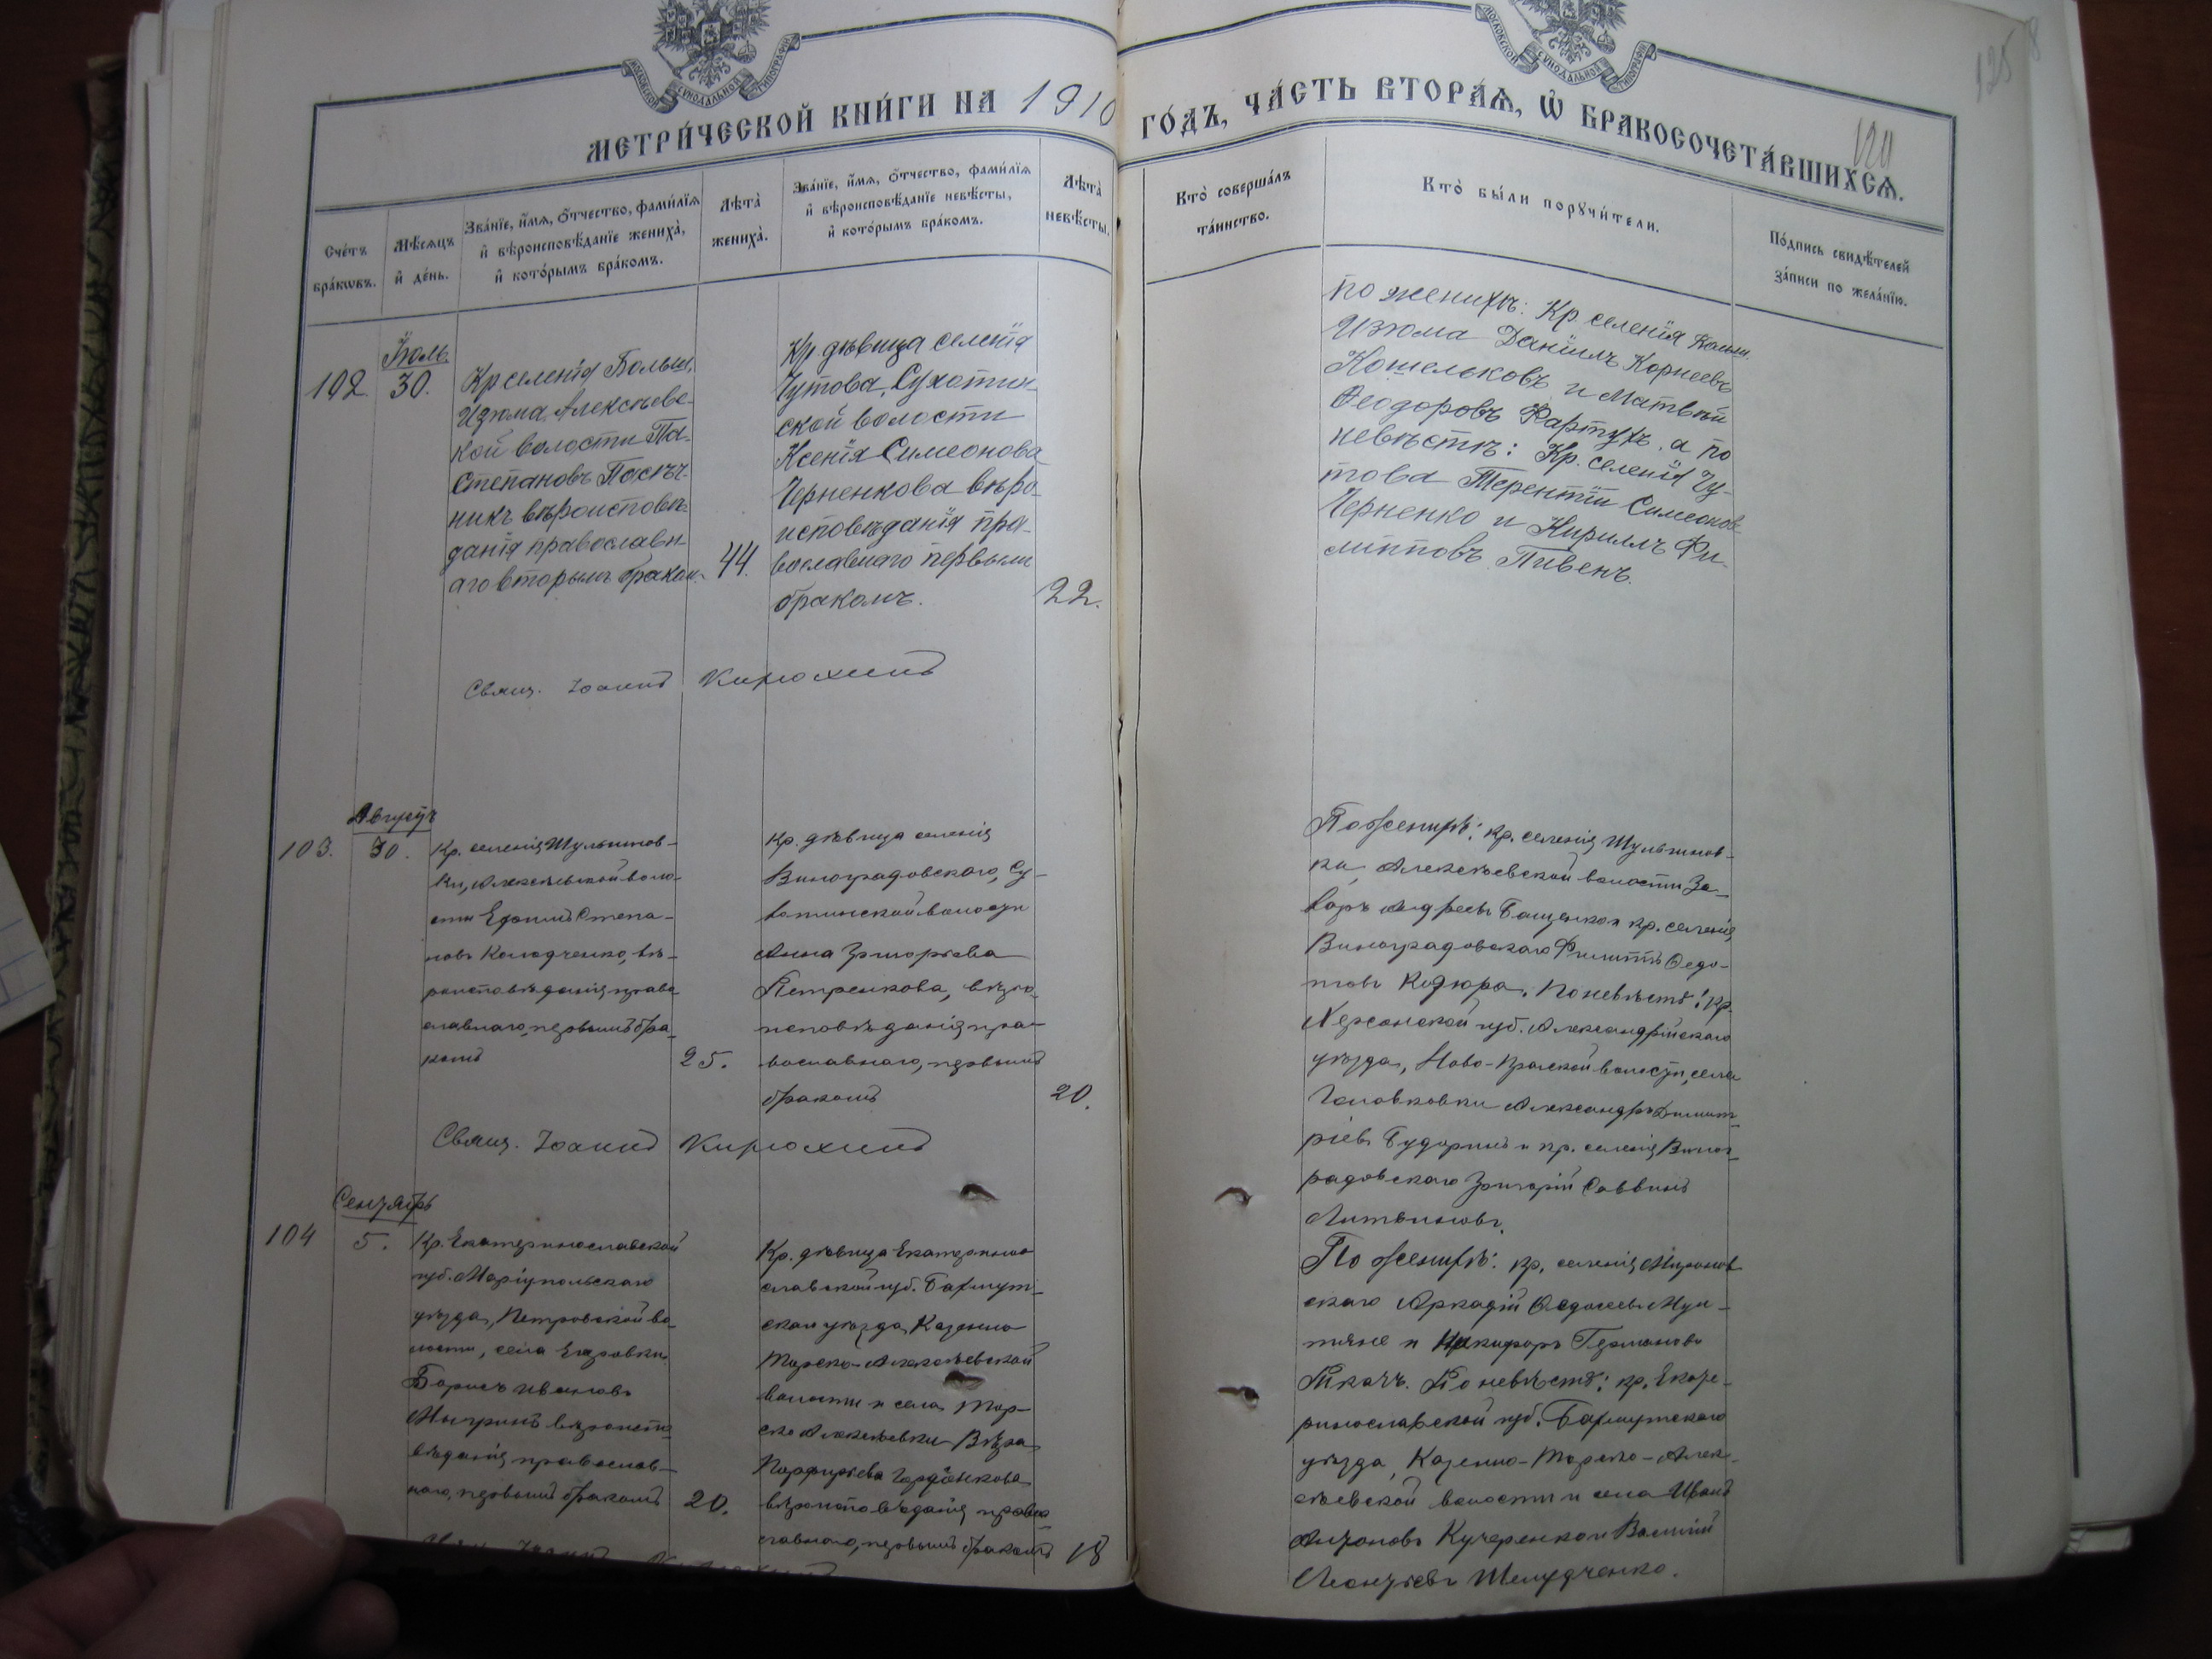 МОСКОВСКОЙ СѴНОДАЛЬНОЙ ТИПОГРАФІИ
МОСКОВСКОЙ СѴНОДАЛЬНОЙ ТИПОГРАФІИ
125
МЕТРИ́ЧЕСКОЙ КНИ́ГИ НА 1910
ГО́ДЪ, ЧА́СТЬ ВТОРА́Ѧ, Ѡ҆ БРАКОСОЧЕТА́ВШИХСѦ.
120
Сче́тъ бра́кѡвъ.
Мѣ́сѧцъ и҆ де́нь.
Зва́нїе, и҆́мѧ, ѻ҆́тчество, фами́лїѧ и҆ вѣроисповѣ́данїе жениха̀, и҆ кото́рымъ бра́комъ.
Лѣта̀ жениха̀.
Зва́нїе, и҆́мѧ, ѻ҆́тчество, фами́лїѧ и҆ вѣроисповѣ́данїе невѣ́сты, и҆ кото́рымъ бра́комъ.
Лѣта̀ невѣ́сты.
Кто̀ соверша́лъ та́инство.
Кто̀ бы́ли порꙋчи́тели.
По́дпись свидѣ́телей за́писи по жела́нїю.
Іюль.
102.
30.
Кр селенія Больш.
Изюма, Алексѣев-
кой волости Па-
Степановъ Пасѣч-
никъ вѣроисповѣ-
данія православн-
аго вторымъ браком.
44.
Кр дѣвица селенія
Чутова, Сухотин-
ской волости
Ксенія Симеонова
Черненкова вѣро-
исповѣданія пра-
вославнаго первымъ
бракомъ.
22.
По женихѣ: Кр. селенія
Изюма Даніилъ Корнеевъ
Кошельковъ и Матвѣй
Ѳеодоровъ Картухъ, а по
невѣстѣ: Кр. селенія Чу-
това Терентій Симеонов
Черненко и Кириллъ Фи-
липповъ Пивень.
Свящ. Іоаннъ Кирюхинъ
Августъ
103.
30.
Кр. селенія Шульгинов-
ки, Алексѣевской воло-
сти Ефимъ Степа-
новъ Колодченко, вѣ-
роисповѣданія право
славнаго, первымъ бра-
комъ
25.
Кр. дѣвица селенія
Виноградовскаго, Су-
хотинской волости
Анна Григорьева
Петренкова, вѣро-
исповѣданія пра-
вославнаго, первымъ
бракомъ
20.
По женихѣ: кр. селенія Шульгинов-
ки, Алексѣевской волости За-
харъ Андреевъ Бащенко и кр. селенія
Виноградовскаго Филиппъ Ѳедо-
товъ. По невѣстѣ: кр.
Херсонской губ. Александрійскаго
уѣзда, Ново-Пражской волости, села
Головковки Александръ Димит-
ріевъ Бударинъ и кр. селенія Виног-
радовскаго Григорій Саввинъ
Литвиновъ.
Свящ. Іоаннъ Кирюхинъ
Сентябрь
104
5.
Кр. Екатеринославской
губ. Маріупольскаго
уѣзда, Петровской во-
лости, села Егоровки
Борисъ Ивановъ
вѣроиспо-
вѣданія православ-
наго, первымъ бракомъ
20.
Кр. дѣвица Екатерино
славской губ. Бахмут-
скаго уѣзда, Казенно
Торско-Алексѣевской
волости и села Тор-
ско Алексѣевки Вѣра
Порфирьева Гордіенкова
вѣроисповѣданія право
славнаго, первымъ бракомъ
18
По женихѣ: кр. селенія Миронов
скаго Аркадій Ѳедосеевъ
и Никифоръ Германовъ
Ткачъ. По невѣстѣ: кр. Екате-
ринославской губ. Бахмутскаго
уѣзда, Казенно-Торско-Алек-
сѣевской волости и села Иванъ
Антоновъ Кучеренко и Василій
Леонтьевъ Шелудченко.